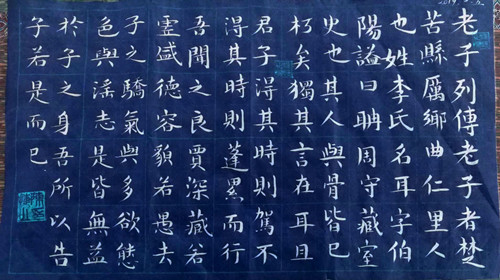 老子列傳老子者楚
苦縣厲鄉曲仁里人
也姓李氏名耳字伯
陽謚曰聃周守藏室
史也其人與骨皆已
朽矣獨其言在耳且
君子得其時則駕不
得其時則蓬累而行
吾聞之良賈深藏若
虛盛德容貌若愚去
子之驕氣與多欲態
色與淫志是皆無益
於子之身吾所以告
子若是而已